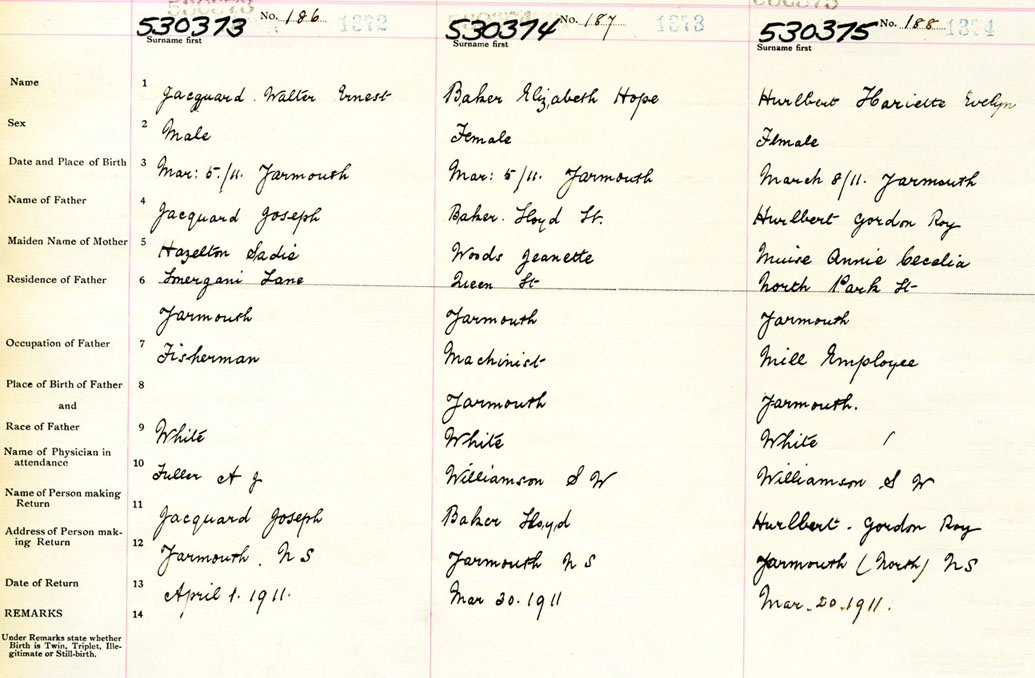 530373 No. 186 1372
Surname first
530374 No. 187 1373
Surname first
530375 No. 188 1374
Surname first
Name 1 Jacquard Walter Ernest Baker Elizabeth Hope Hurlbert Hariette Evelyn
Sex 2 Male Female Female
Date and Place of Birth 3 Mar: 5./11. Yarmouth Mar: 5/11. Yarmouth March 8/11. Yarmouth
Name of Father 4 Jacquard Joseph Baker Lloyd St. Hurlbert Gordon Roy
Maiden Name of Mother 5 Hazelton Sadie Woods Jeanette Muise Annie Cecelia
Residence of Father 6 Lane Queen St North Park St
Yarmouth Yarmouth Yarmouth
Occupation of Father 7 Fisherman Machinist Mill Employee
Place of Birth of Father 8
and
Yarmouth Yarmouth.
Race of Father 9 White White White
Name of Physician in
attendance 10 Fuller A J Williamson S W Williamson S W
Name of Person making
Return 11 Jacquard Joseph Baker Lloyd Hurlbert. Gordon Roy
Address of Person mak-
ing Return 12 Yarmouth. N S Yarmouth N S Yarmouth (North) NS
Date of Return 13 April 1. 1911. Mar 30. 1911 Mar. 20. 1911.
REMARKS 14
Under Remarks state whether
Birth is Twin, Triplet, Ille-
gitimate or Still-birth.